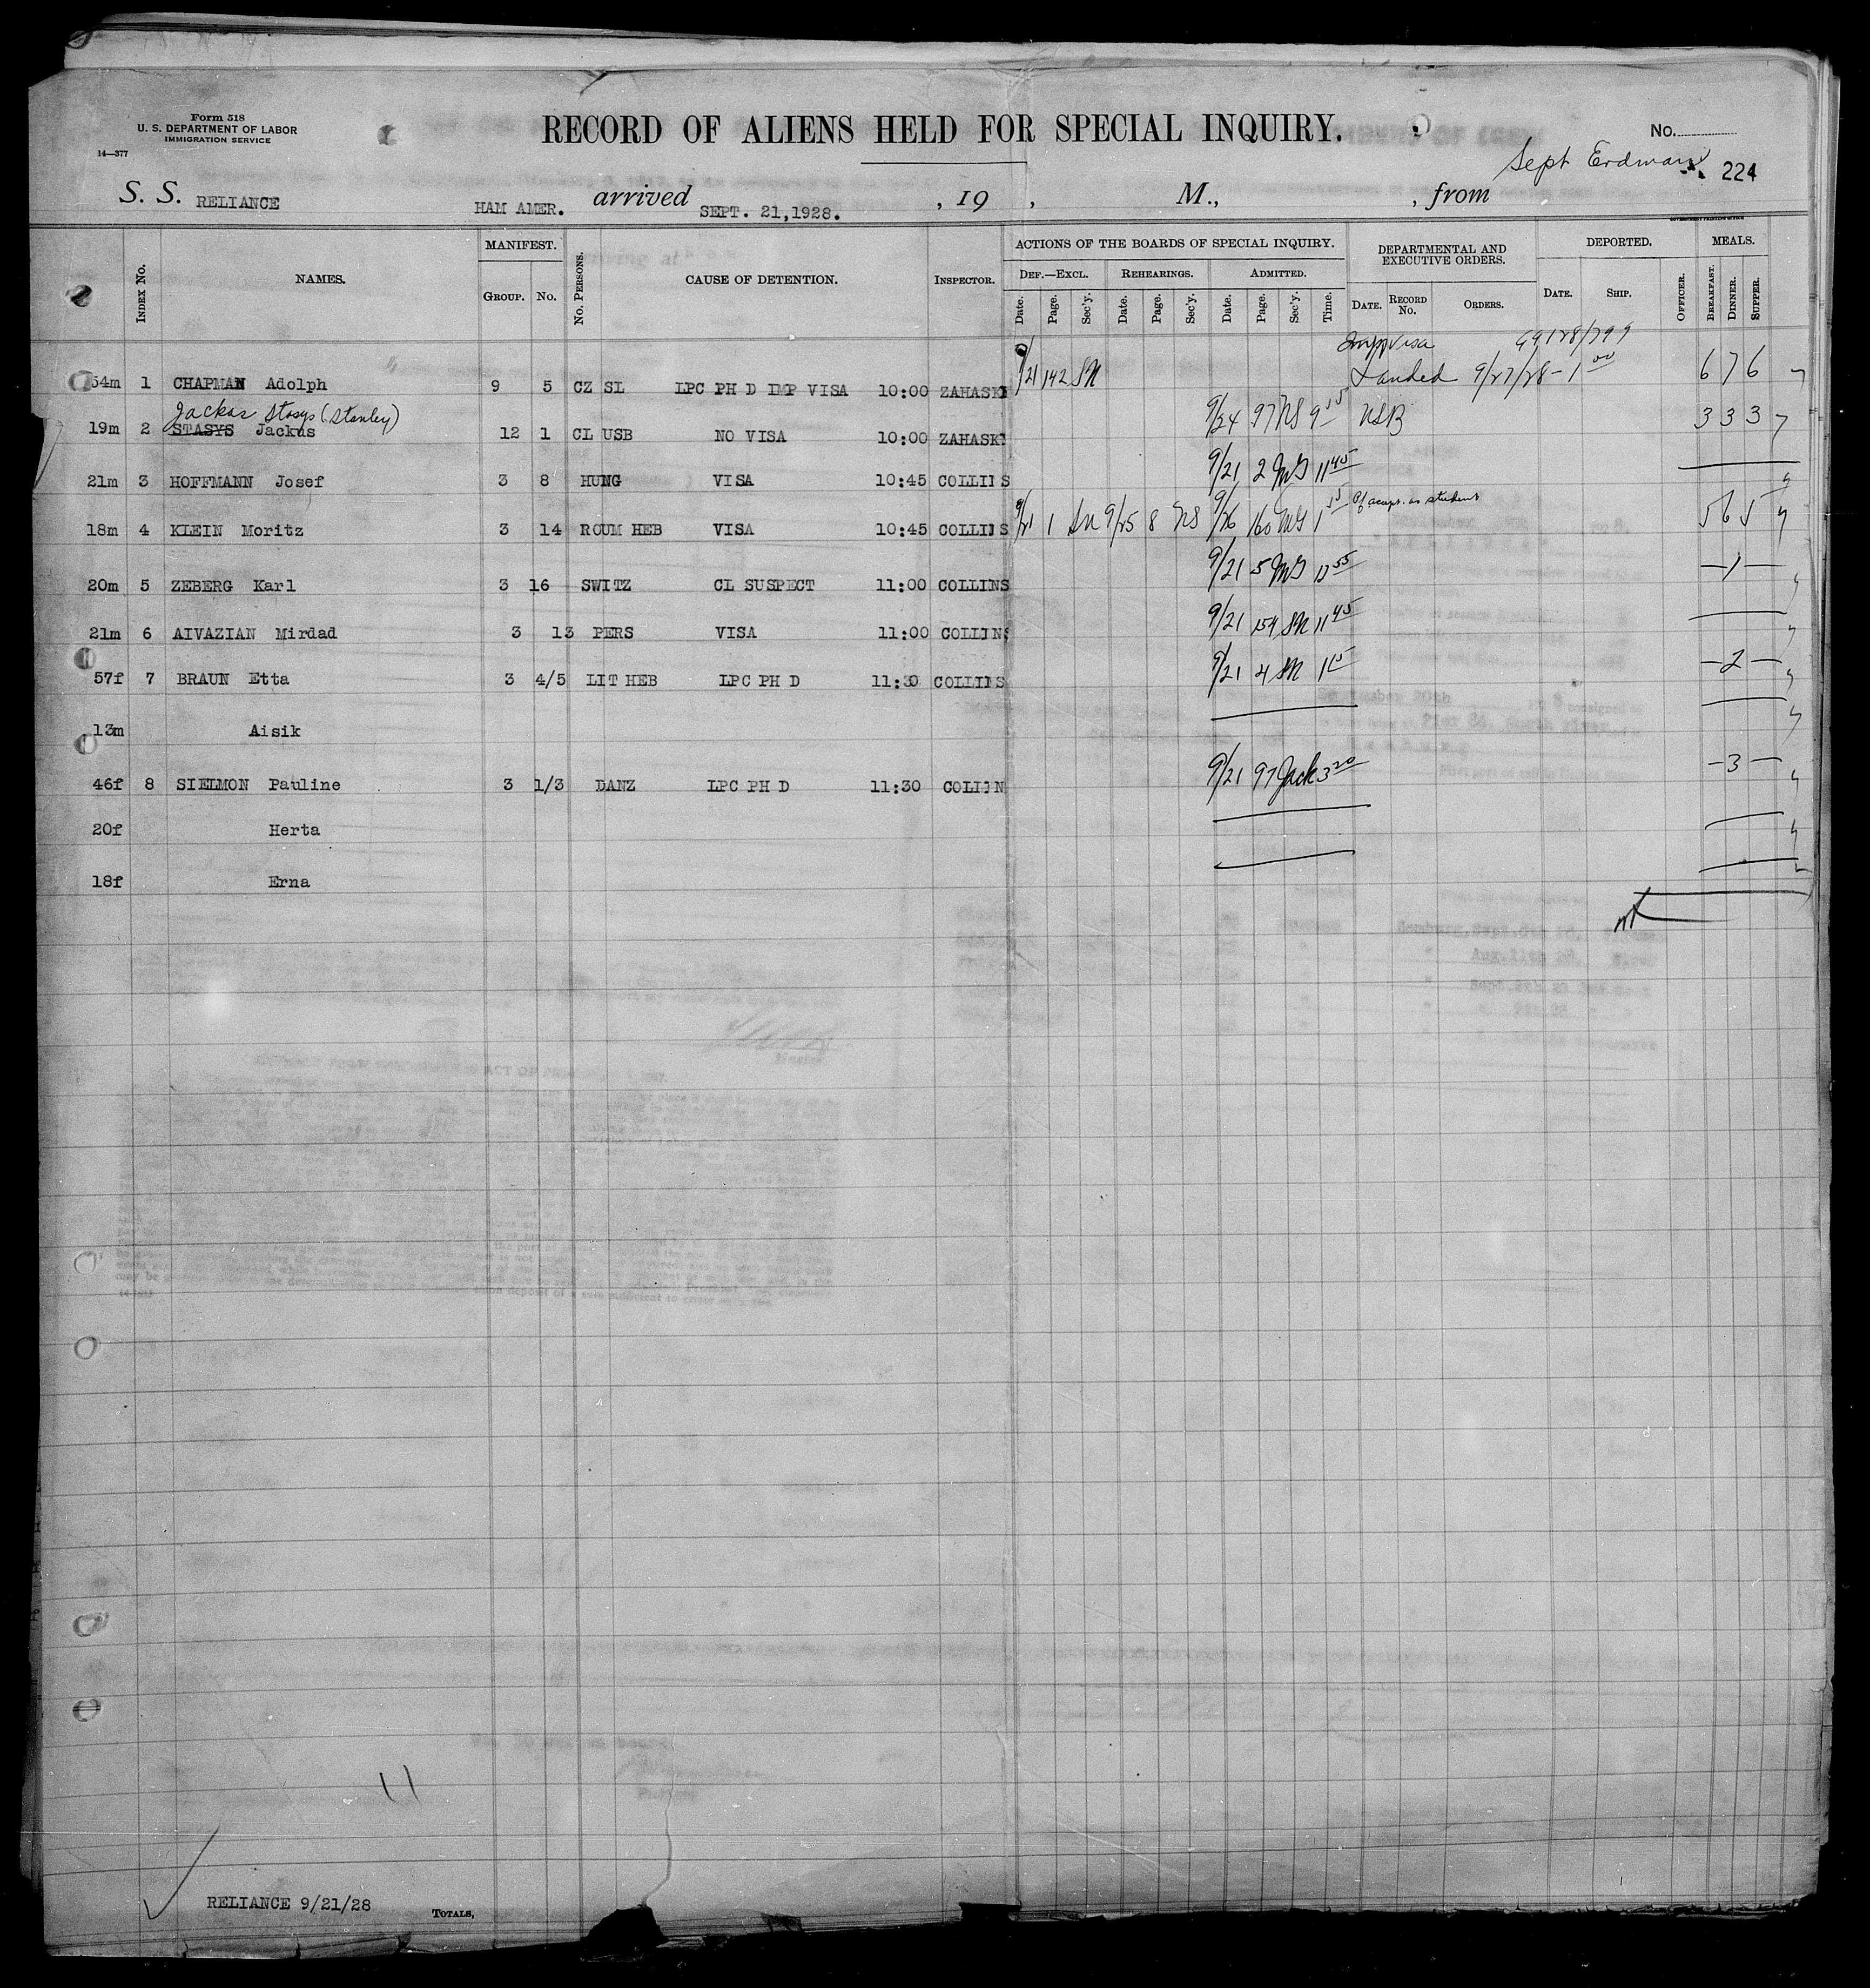 Form 518
U. S. DEPARTMENT OF LABOR
IMMIGRATION SERVICE
14—377
RECORD OF ALIENS HELD FOR SPECIAL INQUIRY.
No.
Sept Erdman
224
S. S. RELIANCE HAM AMER. arrived SEPT. 21,1928. , 19 , M., , from
INDEX No. NAMES. MANIFEST. GROUP. No. No. PERSONS. CAUSE OF DETENTION. INSPECTOR. ACTIONS OF THE BOARDS OF SPECIAL INQUIRY. DEPARTMENTAL AND EXECUTIVE ORDERS. DEPORTED. MEALS.
DEF.—EXCL. REHEARINGS. ADMITTED.
Date. Page. Sec'y. Date. Page. Sec'y. Date. Page. Sec'y. Time. DATE. RECORD No. ORDERS. DATE. SHIP. OFFICER. BREAKFAST. DINNER. SUPPER.
54m 1 CHAPMAN Adolph 9 5 CZ SL LPC PH D IMP VISA 10:00 ZAHASKI 9/21 142 SN Landed 9/27/28-1 00 6 7 6
Jackas Stasys (Stanley)
19m 2 STASYS Jackus 12 1 CL USB NO VISA 10:00 ZAHASKI 9/24 97 NS 9 15 USB 3 3 3
21m 3 HOFFMANN Josef 3 8 HUNG VISA 10:45 COLLINS 9/21 2 11 45
18m 4 KLEIN Moritz 3 14 ROUM HEB VISA 10:45 COLLINS 9/21 1 SN 9/25 8 NS 9/26 160 1 15 as student 5 6 5
20m 5 ZEBERG Karl 3 16 SWITZ CL SUSPECT 11:00 COLLINS 9/21 5 12 55 —1—
21m 6 AIVAZIAN Mirdad 3 13 PERS VISA 11:00 COLLINS 9/21 154 SN 11 45
57f 7 BRAUN Etta 3 4/5 LIT HEB LPC PH D 11:30 COLLINS 9/21 4 SN 1 15 —2—
13m Aisik
46f 8 SIELMON Pauline 3 1/3 DANZ LPC PH D 11:30 COLLIN 9/21 97 Jack 3 20 —3—
20f Herta
18f Erna
11
RELIANCE 9/21/28 TOTALS,